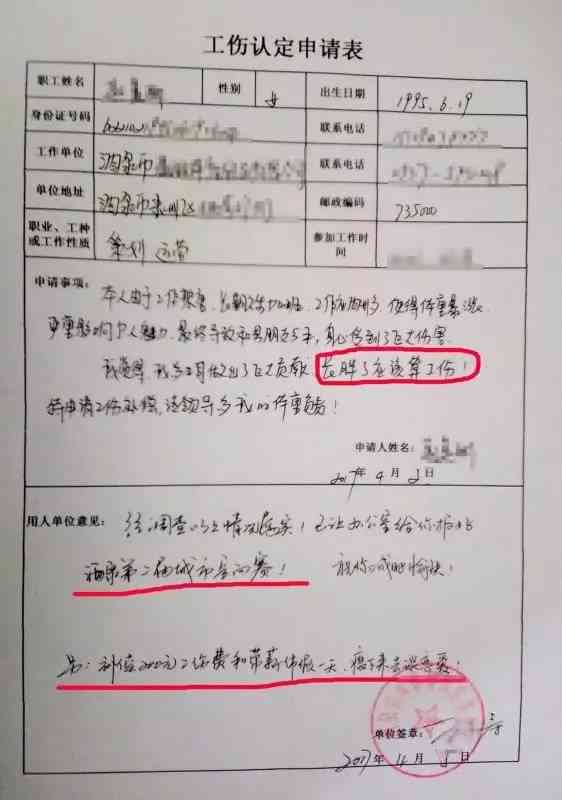 工伤认定申请表
职工姓名 性别 女 出生日期 1995.6.19
身份证号码 联系电话
工作单位 酒泉市 联系电话
单位地址 酒泉市肃州区 邮政编码 735000
职业、工种或工作性质 策划 运营 参加工作时间
申请事项：本人由于工作 长期 加班 工作 使得体重暴涨
严重影响个人魅力，最终导致和男朋友分手，身心受到了巨大伤害。
我觉得，我为公司做出了巨大贡献，长胖了应该算工伤！
特申请工伤补偿，请领导为我的体重负责！
申请人姓名：
2017年4月2日
用人单位意见：经调查以上情况属实！已让办公室给你报名
酒泉第二届城市 赛！ 祝你减肥愉快！
另：补偿2000元工伤费和带薪休假一天，瘦下来去谈恋爱！
单位签章：
2017年4月5日